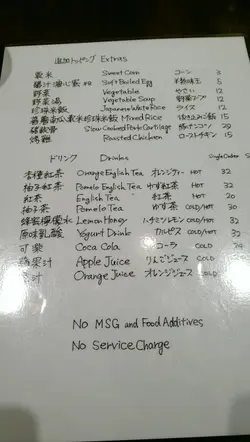 追加トッピング Extras
粟米 Sweet Corn コーン 3
醬汁溏心蛋 Soft Boiled Egg 半熟味玉 5
野菜 Vegetable やさい 12
野菜湯 Vegetable Soup 野菜スープ 12
珍珠米飯 Japanese White Rice ライス 12
粟米珍珠米飯 Mixed Rice 炊き込みご飯 15
豬軟骨 Slow Cooked Pork Cartilage 豚ナンコツ 20
烤雞 Roasted Chicken ローストチキン 15
ドリンク Drinks
香橙紅茶 Orange English Tea オレンジティー HOT 32
柚子紅茶 Pomelo English Tea ゆず紅茶 HOT 32
紅茶 English Tea 紅茶 HOT 20
柚子茶 Pomelo Tea ゆず茶 COLD/HOT 30
蜂蜜檸檬水 Lemon Honey ハチミツレモン COLD/HOT 32
原味乳酸 Yogurt Drink カルピス COLD/HOT 32
可樂 Coca Cola コーラ COLD
蘋果汁 Apple Juice りんごジュース COLD
汁 Orange Juice オレンジジュース COLD
No MSG and Food Additives
No Service Charge